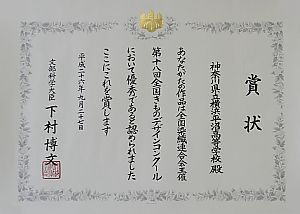 賞状
神奈川県立横浜平沼高等学校 殿
あなたがたの作品は全国染織連合会主催
第十八回全国きものデザインコンクール
において優秀であると認められました
ここにこれを賞します
平成二十六年九月二十七日
文部科学大臣 下村博文